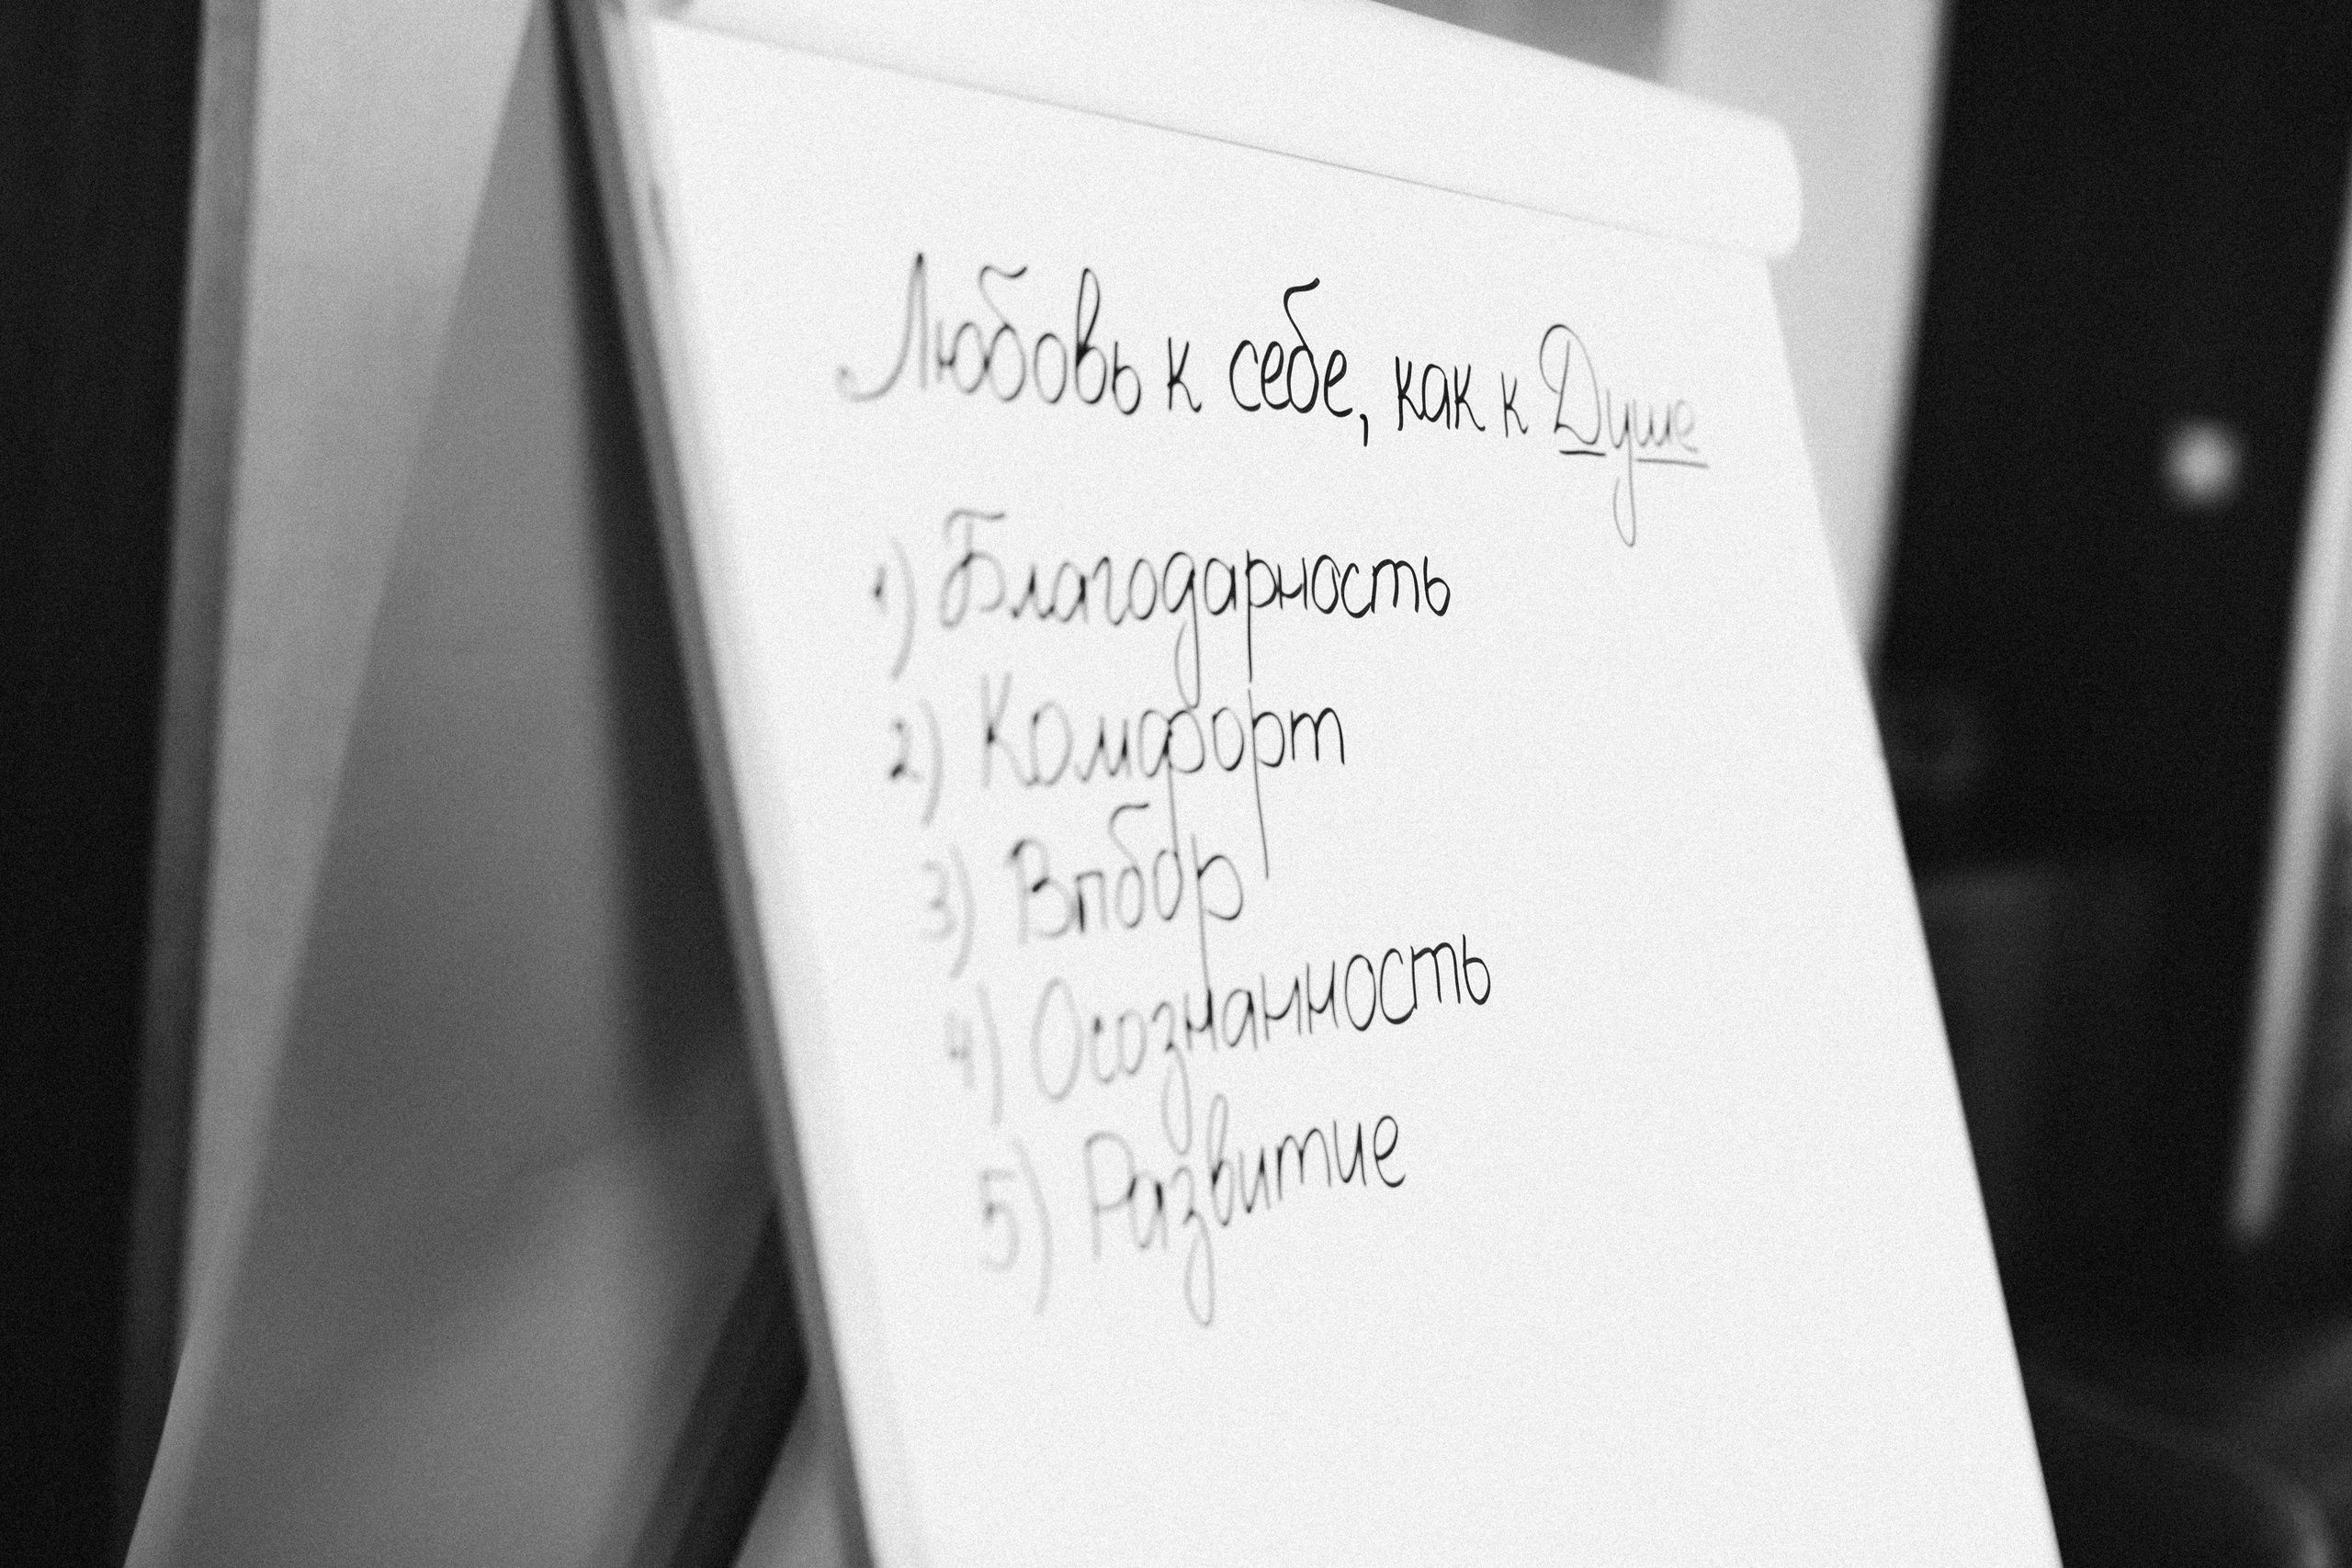 Любовь к себе, как к Душе
1) Благодарность
2) Комфорт
3) Выбор
4) Осознанность
5) Развитие